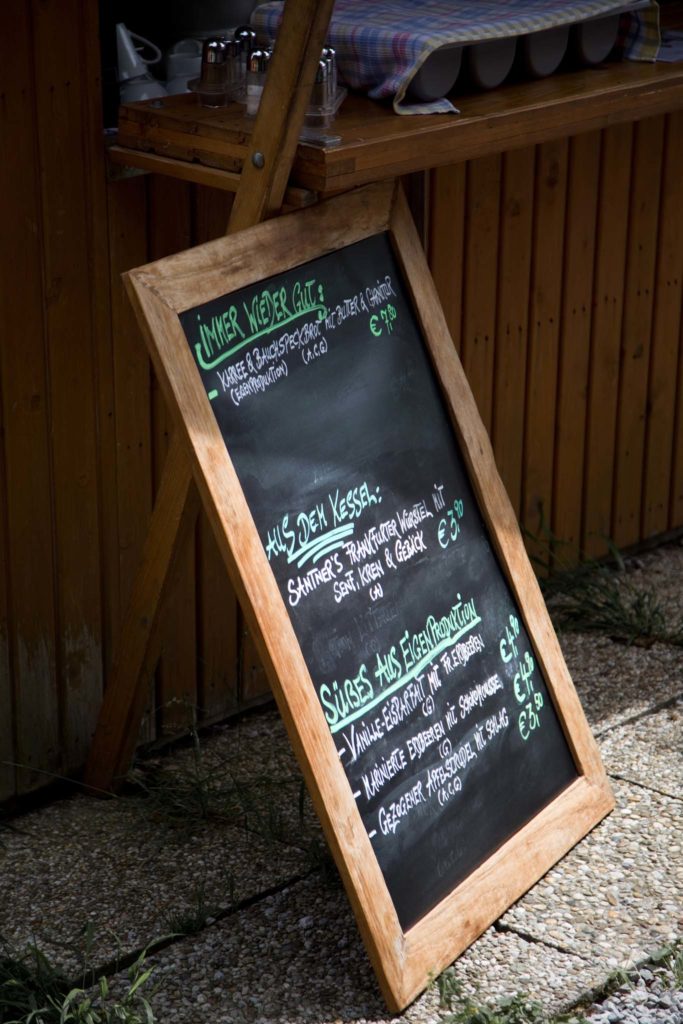 IMMER WIEDER GUT:
- KARREE & BAUCHSPECKBROT MIT BUTTER & GARNITUR
(EIGENPRODUKTION) (A,C,G) € 7,90
AUS DEM KESSEL:
SANTNER'S FRANKFURTER WÜRSTEL MIT
SENF, KREN & GEBÄCK € 3,90
(A)
SÜßES AUS EIGENPRODUKTION
- VANILLE-EISPARFAIT MIT ERDBEEREN € 4,90
(G)
- MARINIERTE ERDBEEREN MIT SCHOKOMOUSSE € 4,90
(G)
- GEZOGENER APFELSTRUDEL MIT SCHLAG € 3,50
(A,C,G)